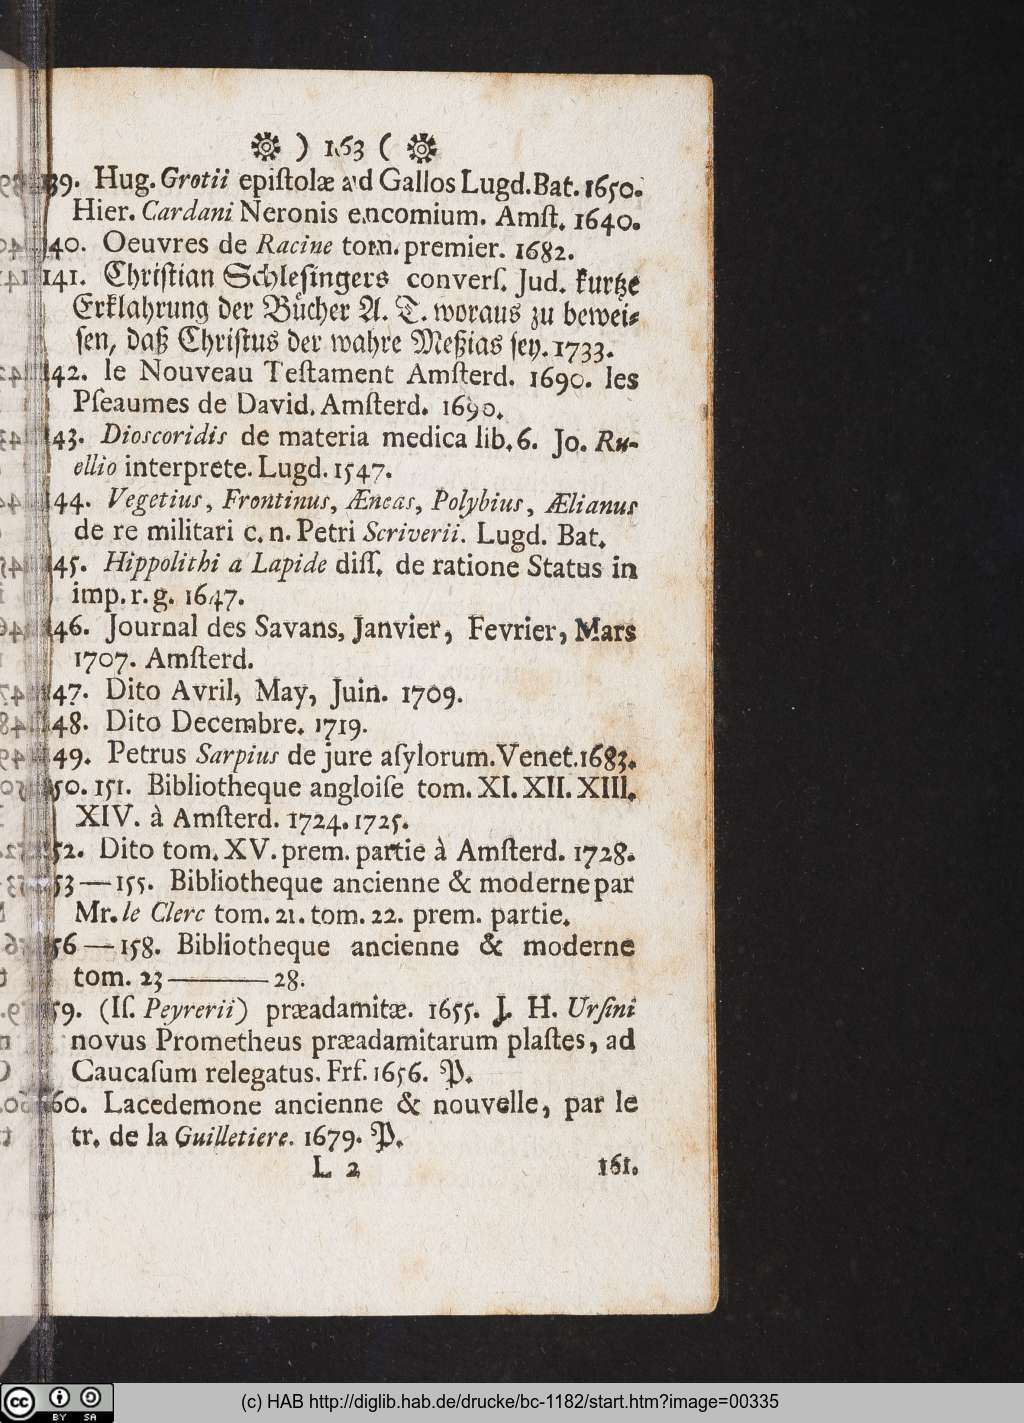 ) 163 (
139. Hug. Grotii epiſtolæ ad Gallos Lugd. Bat. 1650.
Hier. Cardani Neronis encomium. Amſt. 1640.
140. Oeuvres de Racine tom. premier. 1682.
141. Chriſtian Schleſingers converſ. Jud. kurtze
Erklahrung der Bücher A. T. woraus zu bewei⸗
ſen, daß Chriſtus der wahre Meßias ſey. 1733.
142. le Nouveau Teſtament Amſterd. 1690. les
Pſeaumes de David. Amſterd. 1690.
143. Dioscoridis de materia medica lib. 6. Jo. Ru-
ellio interprete. Lugd. 1547.
144. Vegetius, Frontinus, Æneas, Polybius, Ælianus
de re militari c. n. Petri Scriverii. Lugd. Bat.
145. Hippolithi a Lapide diſſ. de ratione Status in
imp. r. g. 1647.
146. Journal des Savans, Janvier, Fevrier, Mars
1707. Amſterd.
147. Dito Avril, May, Juin. 1709.
148. Dito Decembre. 1719.
149. Petrus Sarpius de jure aſylorum. Venet. 1683.
150. 151. Bibliotheque angloiſe tom. XI. XII. XIII.
XIV. à Amſterd. 1724. 1725.
152. Dito tom. XV. prem. partie à Amſterd. 1728.
153 — 155. Bibliotheque ancienne & moderne par
Mr. le Clerc tom. 21. tom. 22. prem. partie.
156 — 158. Bibliotheque ancienne & moderne
tom. 23 ——— 28.
159. (Iſ. Peyrerii) præadamitæ. 1655. J. H. Urſini
novus Prometheus præadamitarum plaſtes, ad
Caucaſum relegatus. Frf. 1656. P.
160. Lacedemone ancienne & nouvelle, par le
tr. de la Guilletiere. 1679. P.
L 2 161.
(c) HAB http://diglib.hab.de/drucke/bc-1182/start.htm?image=00335
cc BY SA